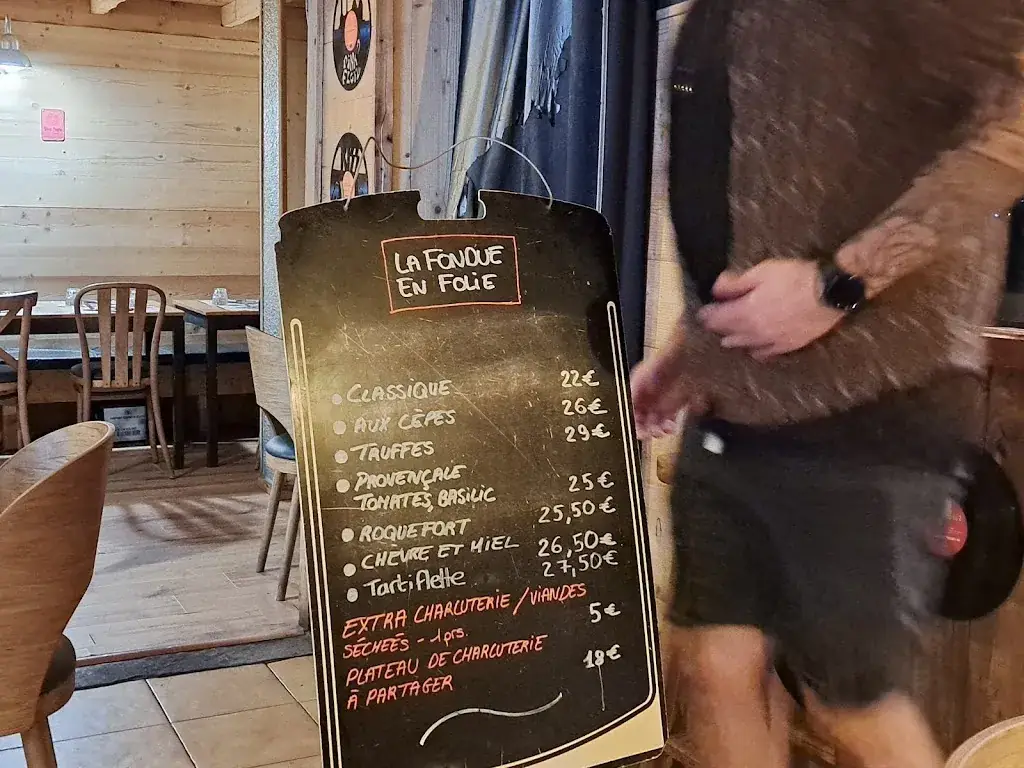 LA FONDUE
EN FOLIE
• CLASSIQUE 22€
• AUX CÈPES 26€
• TRUFFES 29€
• PROVENÇALE
TOMATES, BASILIC 25€
• ROQUEFORT 25,50€
• CHEVRE ET MIEL 26,50€
• Tartiflette 27,50€
EXTRA CHARCUTERIE / VIANDES
SÉCHEÉS - 1 prs. 5€
PLATEAU DE CHARCUTERIE
À PARTAGER 18€